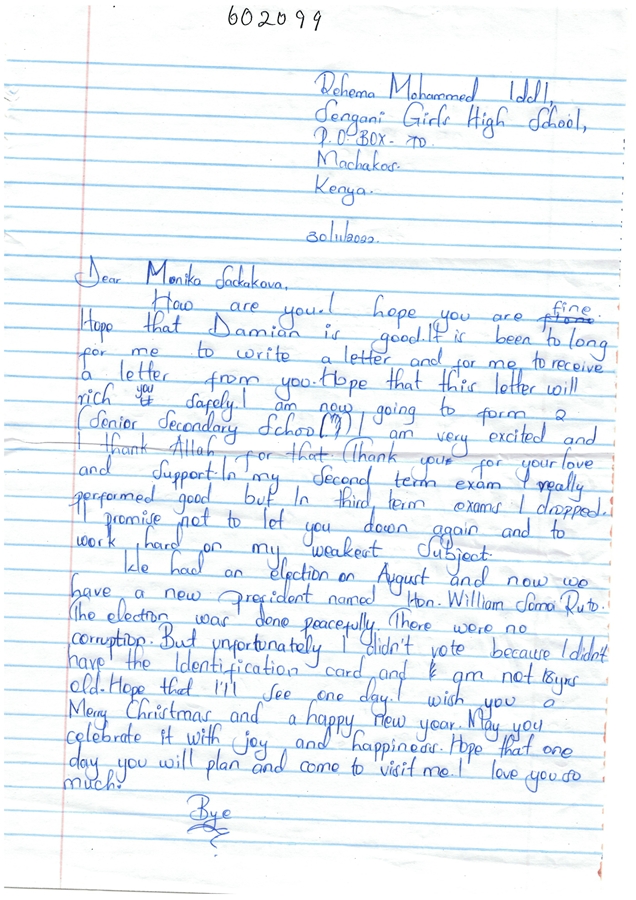 602099
Rehema Mohammed Iddi,
Sengani Girls High School,
P.O-BOX- TO
Machakos.
Kenya.
30/11/2022.
Dear Monika Sadakova,
How are you.I hope you are fine.
Hope that Damian is good.It is been to long
for me to write a letter and for me to receive
a letter from you.Hope that this letter will
rich you safely.I am now going to form 2
(Senior Secondary School(?) I am very excited and
I thank Allah for that. Thank you for your love
and support.In my second term exam I really
performed good but In third term exams I dropped.
I promise not to let you down again and to
work hard on my weakest subject.
We had an election on August and now we
have a new president named Hon. William Samoi Ruto.
The election was done peacefully. There were no
corruption. But unfortunately I didn't vote because I didn't
have the Identification card and I am not 18yrs
old.Hope that I'll see one day.I wish you a
Merry Christmas and a happy new year.May you
celebrate it with joy and happiness.Hope that one
day you will plan and come to visit me.I love you so
much.
Bye